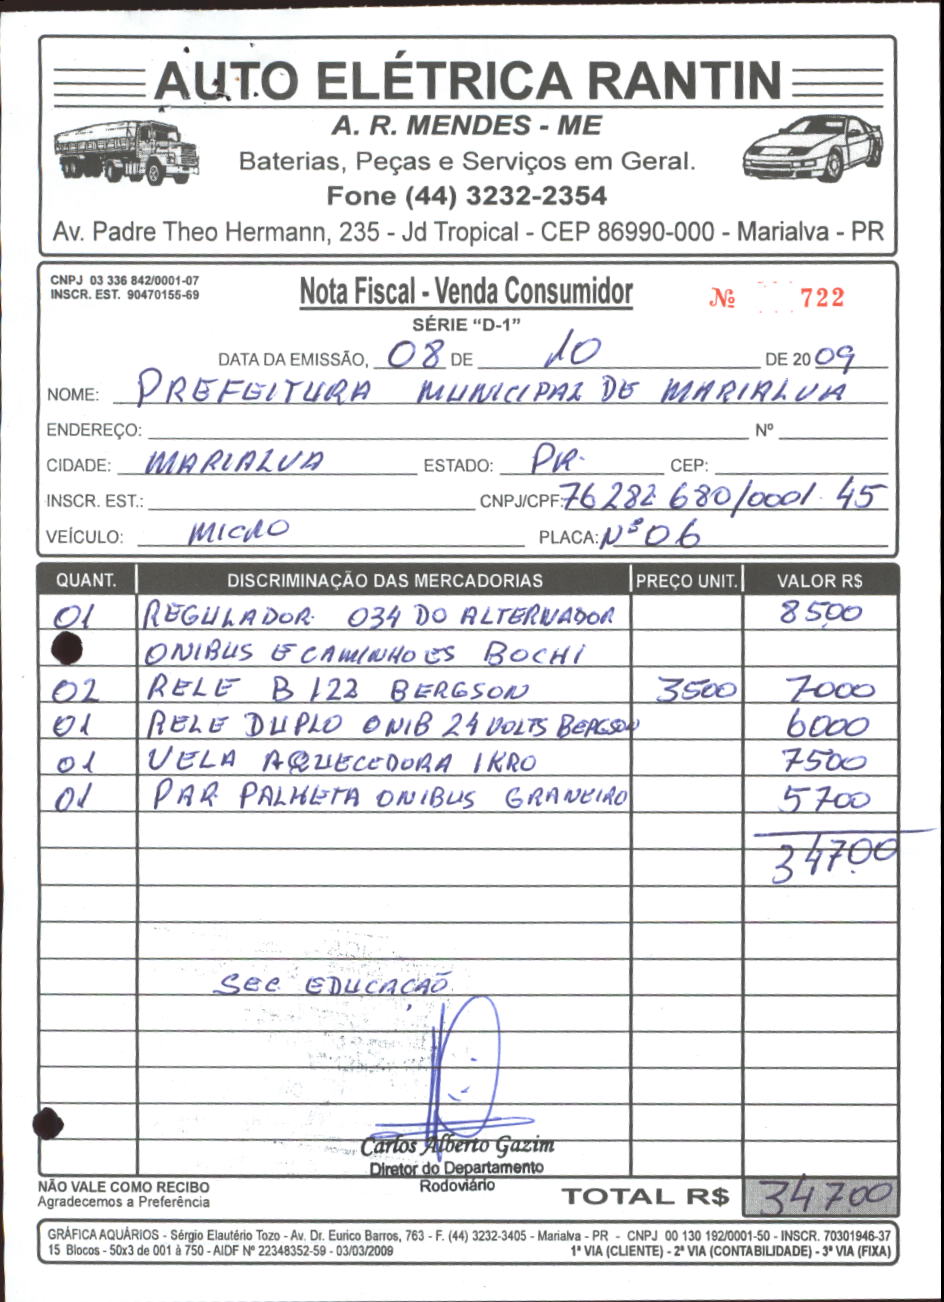 AUTO ELÉTRICA RANTIN
A. R. MENDES - ME
Baterias, Peças e Serviços em Geral.
Fone (44) 3232-2354
Av. Padre Theo Hermann, 235 - Jd Tropical - CEP 86990-000 - Marialva - PR
CNPJ 03 336 842/0001-07
INSCR. EST. 90470155-69
Nota Fiscal - Venda Consumidor
Nº 722
SÉRIE "D-1"
DATA DA EMISSÃO, 08 DE 10 DE 2009
NOME: PREFEITURA MUNICIPAL DE MARIALVA
ENDEREÇO: Nº
CIDADE: MARIALVA ESTADO: PR. CEP:
INSCR. EST.: CNPJ/CPF: 76 282 680/0001 45
VEÍCULO: MICRO PLACA: Nº 06
QUANT. DISCRIMINAÇÃO DAS MERCADORIAS PREÇO UNIT. VALOR R$
01 REGULADOR 034 DO ALTERNADOR 8500
ONIBUS E CAMINHOES BOCHI
02 RELE B 122 BERGSON 3500 7000
01 RELE DUPLO ONIB 24 VOLTS BERGSON 6000
01 VELA AQUECEDORA IKRO 7500
01 PAR PALHETA ONIBUS GRANEIRO 5700
347.00
SEC EDUCAÇÃO
Carlos Alberto Gazim
Diretor do Departamento
Rodoviário
NÃO VALE COMO RECIBO
Agradecemos a Preferência
TOTAL R$ 347.00
GRÁFICA AQUÁRIOS - Sérgio Elautério Tozo - Av. Dr. Eurico Barros, 763 - F. (44) 3232-3405 - Marialva - PR - CNPJ 00 130 192/0001-50 - INSCR. 70301946-37
15 Blocos - 50x3 de 001 à 750 - AIDF Nº 22348352-59 - 03/03/2009
1ª VIA (CLIENTE) - 2ª VIA (CONTABILIDADE) - 3ª VIA (FIXA)